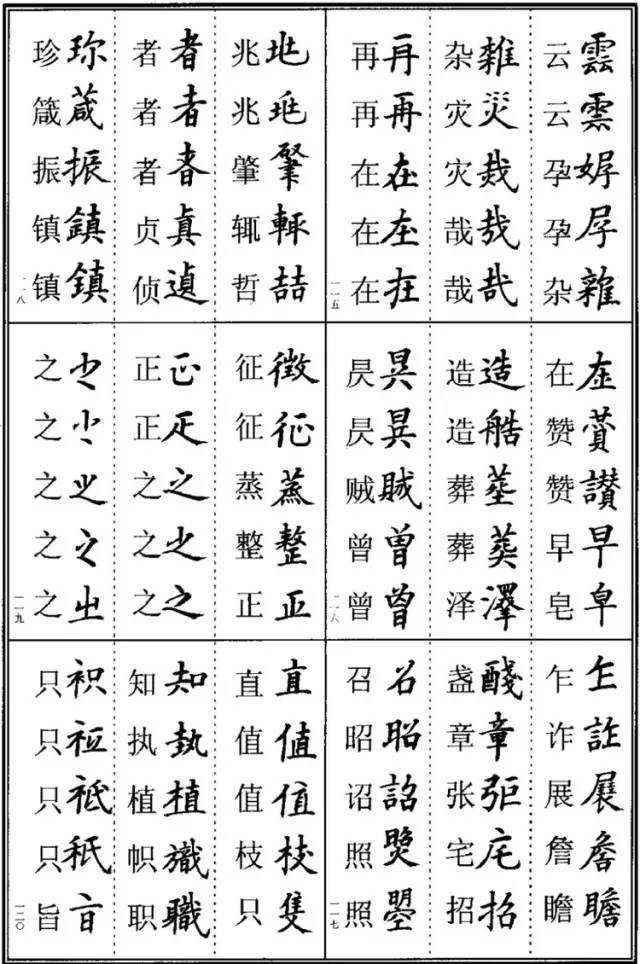 云 雲
云
孕
孕
杂 雜
杂 雜
灾 災
灾
哉 哉
哉 哉
再 再
再 再
在 在
在 在
在 在
一一五
在 在
赞 賛
赞 讃
早 早
皂 皁
造 造
造 艁
葬
葬 葬
泽 澤
昃
昃
贼 賊
曾 曽
曾 曾
一一六
乍 乍
诈 詐
展 展
詹 詹
瞻 瞻
盏 醆
章 章
张
宅 宅
招 招
召 召
昭 昭
诏 詔
照
照 曌
一一七
兆
兆
肇 肇
辄 輒
哲 喆
者 者
者 者
者
贞 真
侦 遉
珍 珎
箴 葴
振 振
镇 鎮
镇 鎮
一一八
征 徵
征 征
蒸 蒸
整 整
正 正
正 正
正
之 之
之 之
之 之
之 之
之
之 㞢
之 之
之 㞢
一一九
直 直
值 值
值 值
枝 枝
只 隻
知 知
执 執
植 植
帜 幟
职 職
只
只
只 祗
只 秖
旨
一二〇